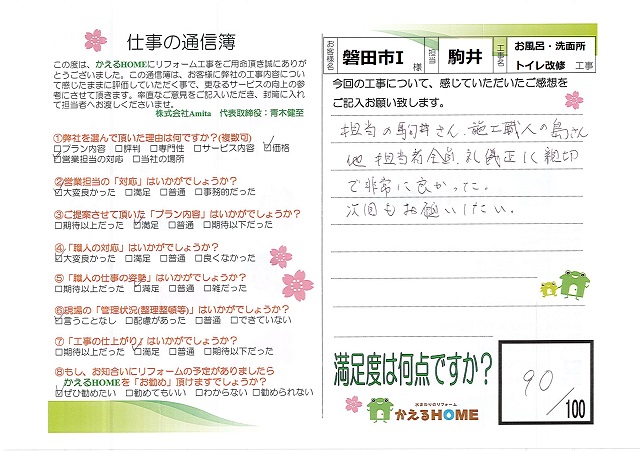 仕事の通信簿
この度は、かえるHOMEにリフォーム工事をご用命頂き誠にありが
とうございました。この通信簿は、お客様に弊社の工事内容につい
て感じたままに評価していただく事で、更なるサービスの向上の参
考にさせて頂きます。率直なご意見をご記入いただき、封筒に入れ
て担当者へお渡しくださいませ。
株式会社Amita 代表取締役:青木健至
①弊社を選んで頂いた理由は何ですか?(複数可)
□プラン内容 □評判 □専門性 □サービス内容 ☑価格
☑営業担当の対応 □当社の場所
②営業担当の「対応」はいかがでしょうか?
☑大変良かった □満足 □普通 □事務的だった
③ご提案させて頂いた「プラン内容」はいかがでしょうか?
□期待以上だった ☑満足 □普通 □期待以下だった
④「職人の対応」はいかがでしょうか?
☑大変良かった □満足 □普通 □良くなかった
⑤「職人の仕事の姿勢」はいかがでしょうか?
□期待以上だった ☑満足 □普通 □雑だった
⑥現場の「管理状況(整理整頓等)」はいかがでしょうか?
☑言うことなし □配慮があった □普通 □できていない
⑦「工事の仕上がり」はいかがでしょうか?
□期待以上だった ☑満足 □普通 □期待以下だった
⑧もし、お知合いにリフォームの予定がありましたら
かえるHOMEを「お勧め」頂けますでしょうか?
☑ぜひ勧めたい □勧めてもいい □わからない □勧められない
お客様名 磐田市I 様 担当 駒井 工事名 お風呂・洗面所
トイレ改修 工事
今回の工事について、感じていただいたご感想を
ご記入お願い致します。
担当の駒井さん、施工職人の島さん
他 担当者全員、礼儀正しく親切
で非常に良かった。
次回もお願いしたい。
満足度は何点ですか?
90/100
水まわりのリフォーム
かえるHOME